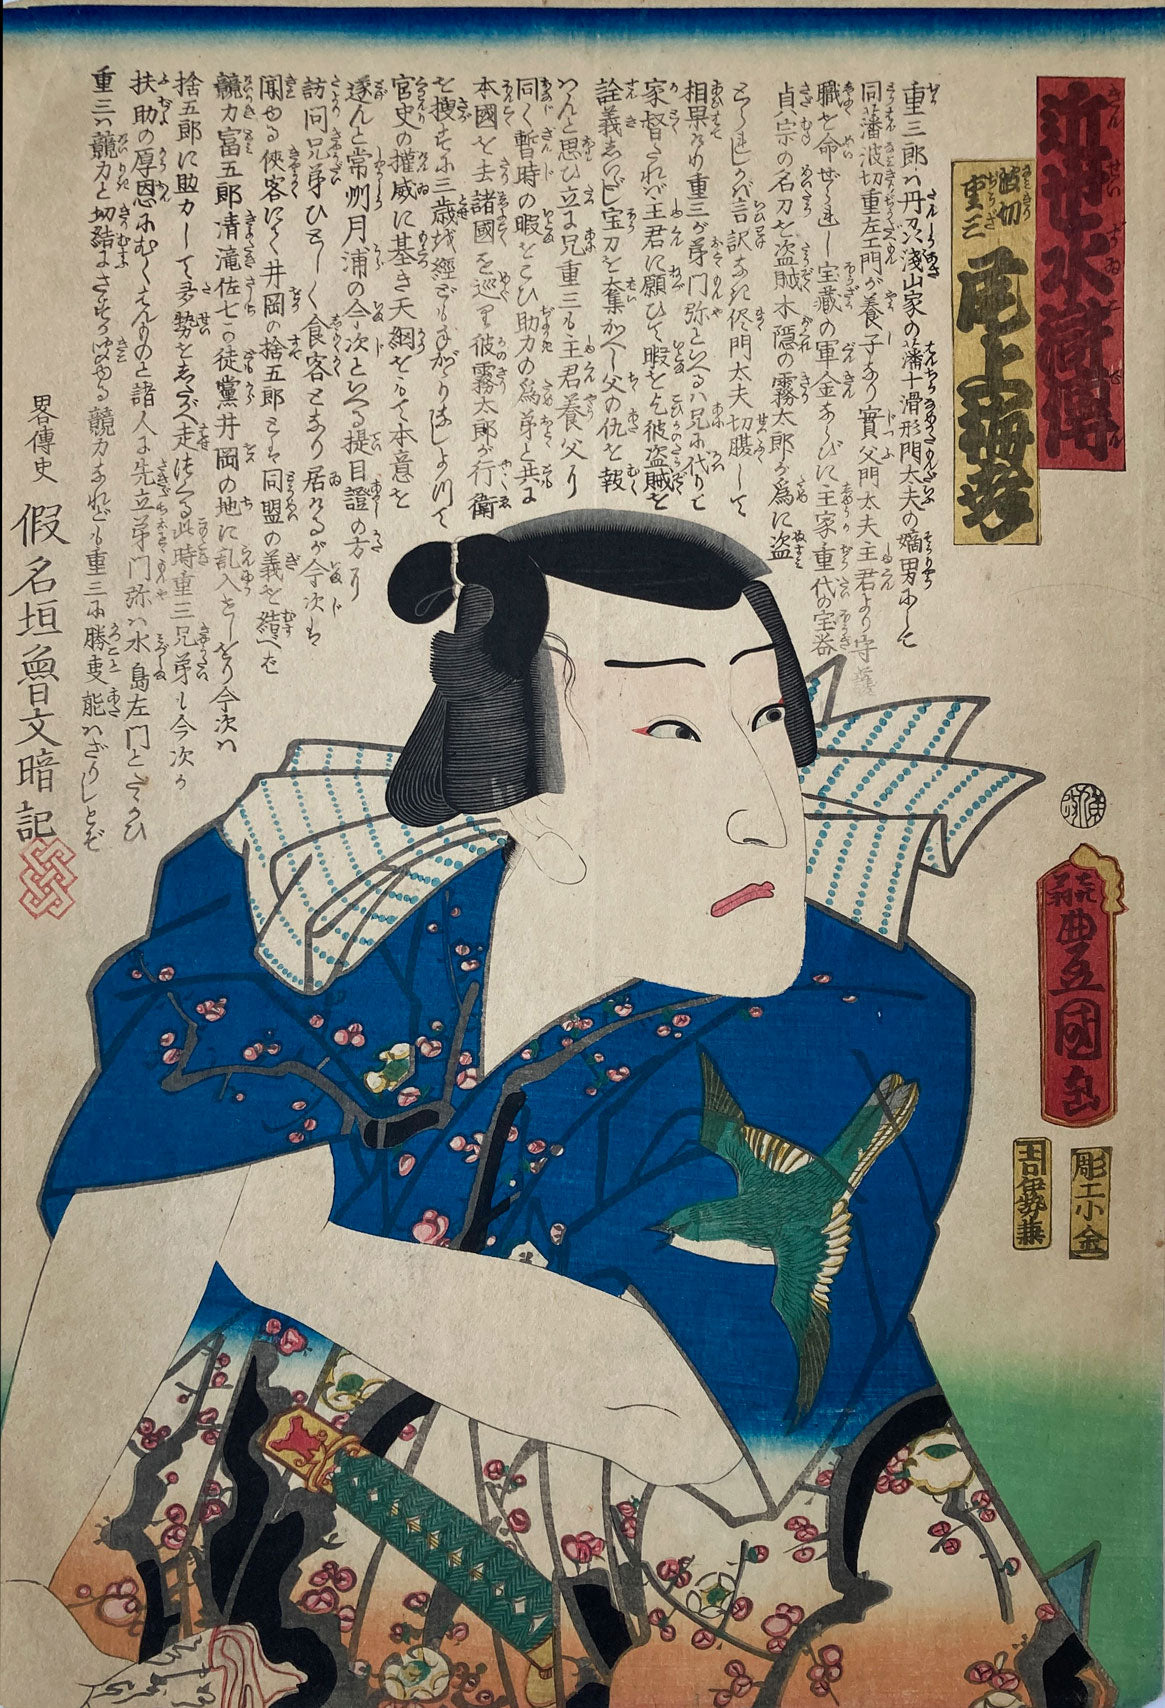 近世水滸傳
きんせいすゐこでん
波切重三
尾上梅幸
重三郎ハ丹次淺山家の藩十滑形門大夫の嫡男にして
同藩波切重左エ門が養子なり實父門太夫主君より守護
職を命ぜられし宝蔵の軍金ならびに主家重代の宝器
貞宗の名刀を盗賊木隠の霧太郎が為に盗
とられしかバ言訳なさに侭門太夫切腹して
相果けれバ重三が弟門弥といへるハ兄に代りて
家督たれバ主君に願ひて暇を乞彼盗賊を
詮義なし宝刀を奪かへし父の仇を報
はんと思ひ立に兄重三も主君養父に
同く暫時の暇をこひ助力の為弟と共に
本國を去諸國を巡里彼霧太郎が行衛
を捜すに三歳を經ども手がゝりなしよつて
官史の權威に基き天網をもて本意を
遂んと常州月浦の今次といへる提目證の方に
訪問兄弟ひとしく食客となり居けるが今次は
聞ゆる侠客にて井岡の捨五郎と同盟の義を結べば
競力富五郎清滝佐七の徒黨井岡の地に乱入せしをり今次ハ
捨五郎に助力して多勢をしたがへ走せる此時重三兄弟も今次が
扶助の厚恩にむくはんものと諸人に先立弟門弥ハ水島左門とたゝかひ
重三ハ競力と切結にさすが聞ゆる競力なれども重三に勝事能ハざりしとぞ
畧傳史
假名垣魯文暗記
豊國画
彫工小金
吉伊勢兼